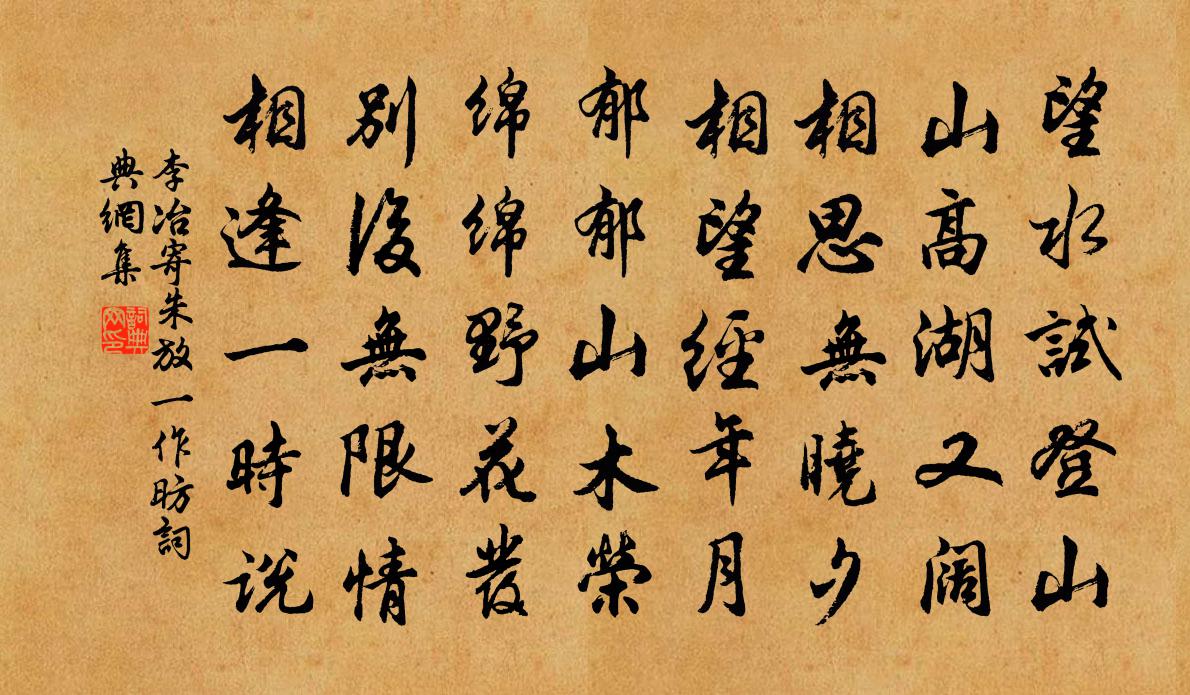 望水試登山
山高湖又阔
相思無曉夕
相望經年月
郁郁山木榮
綿綿野花發
別後無限情
相逢一時説
李冶寄朱放一作昉詞
典網集
詞典
网印